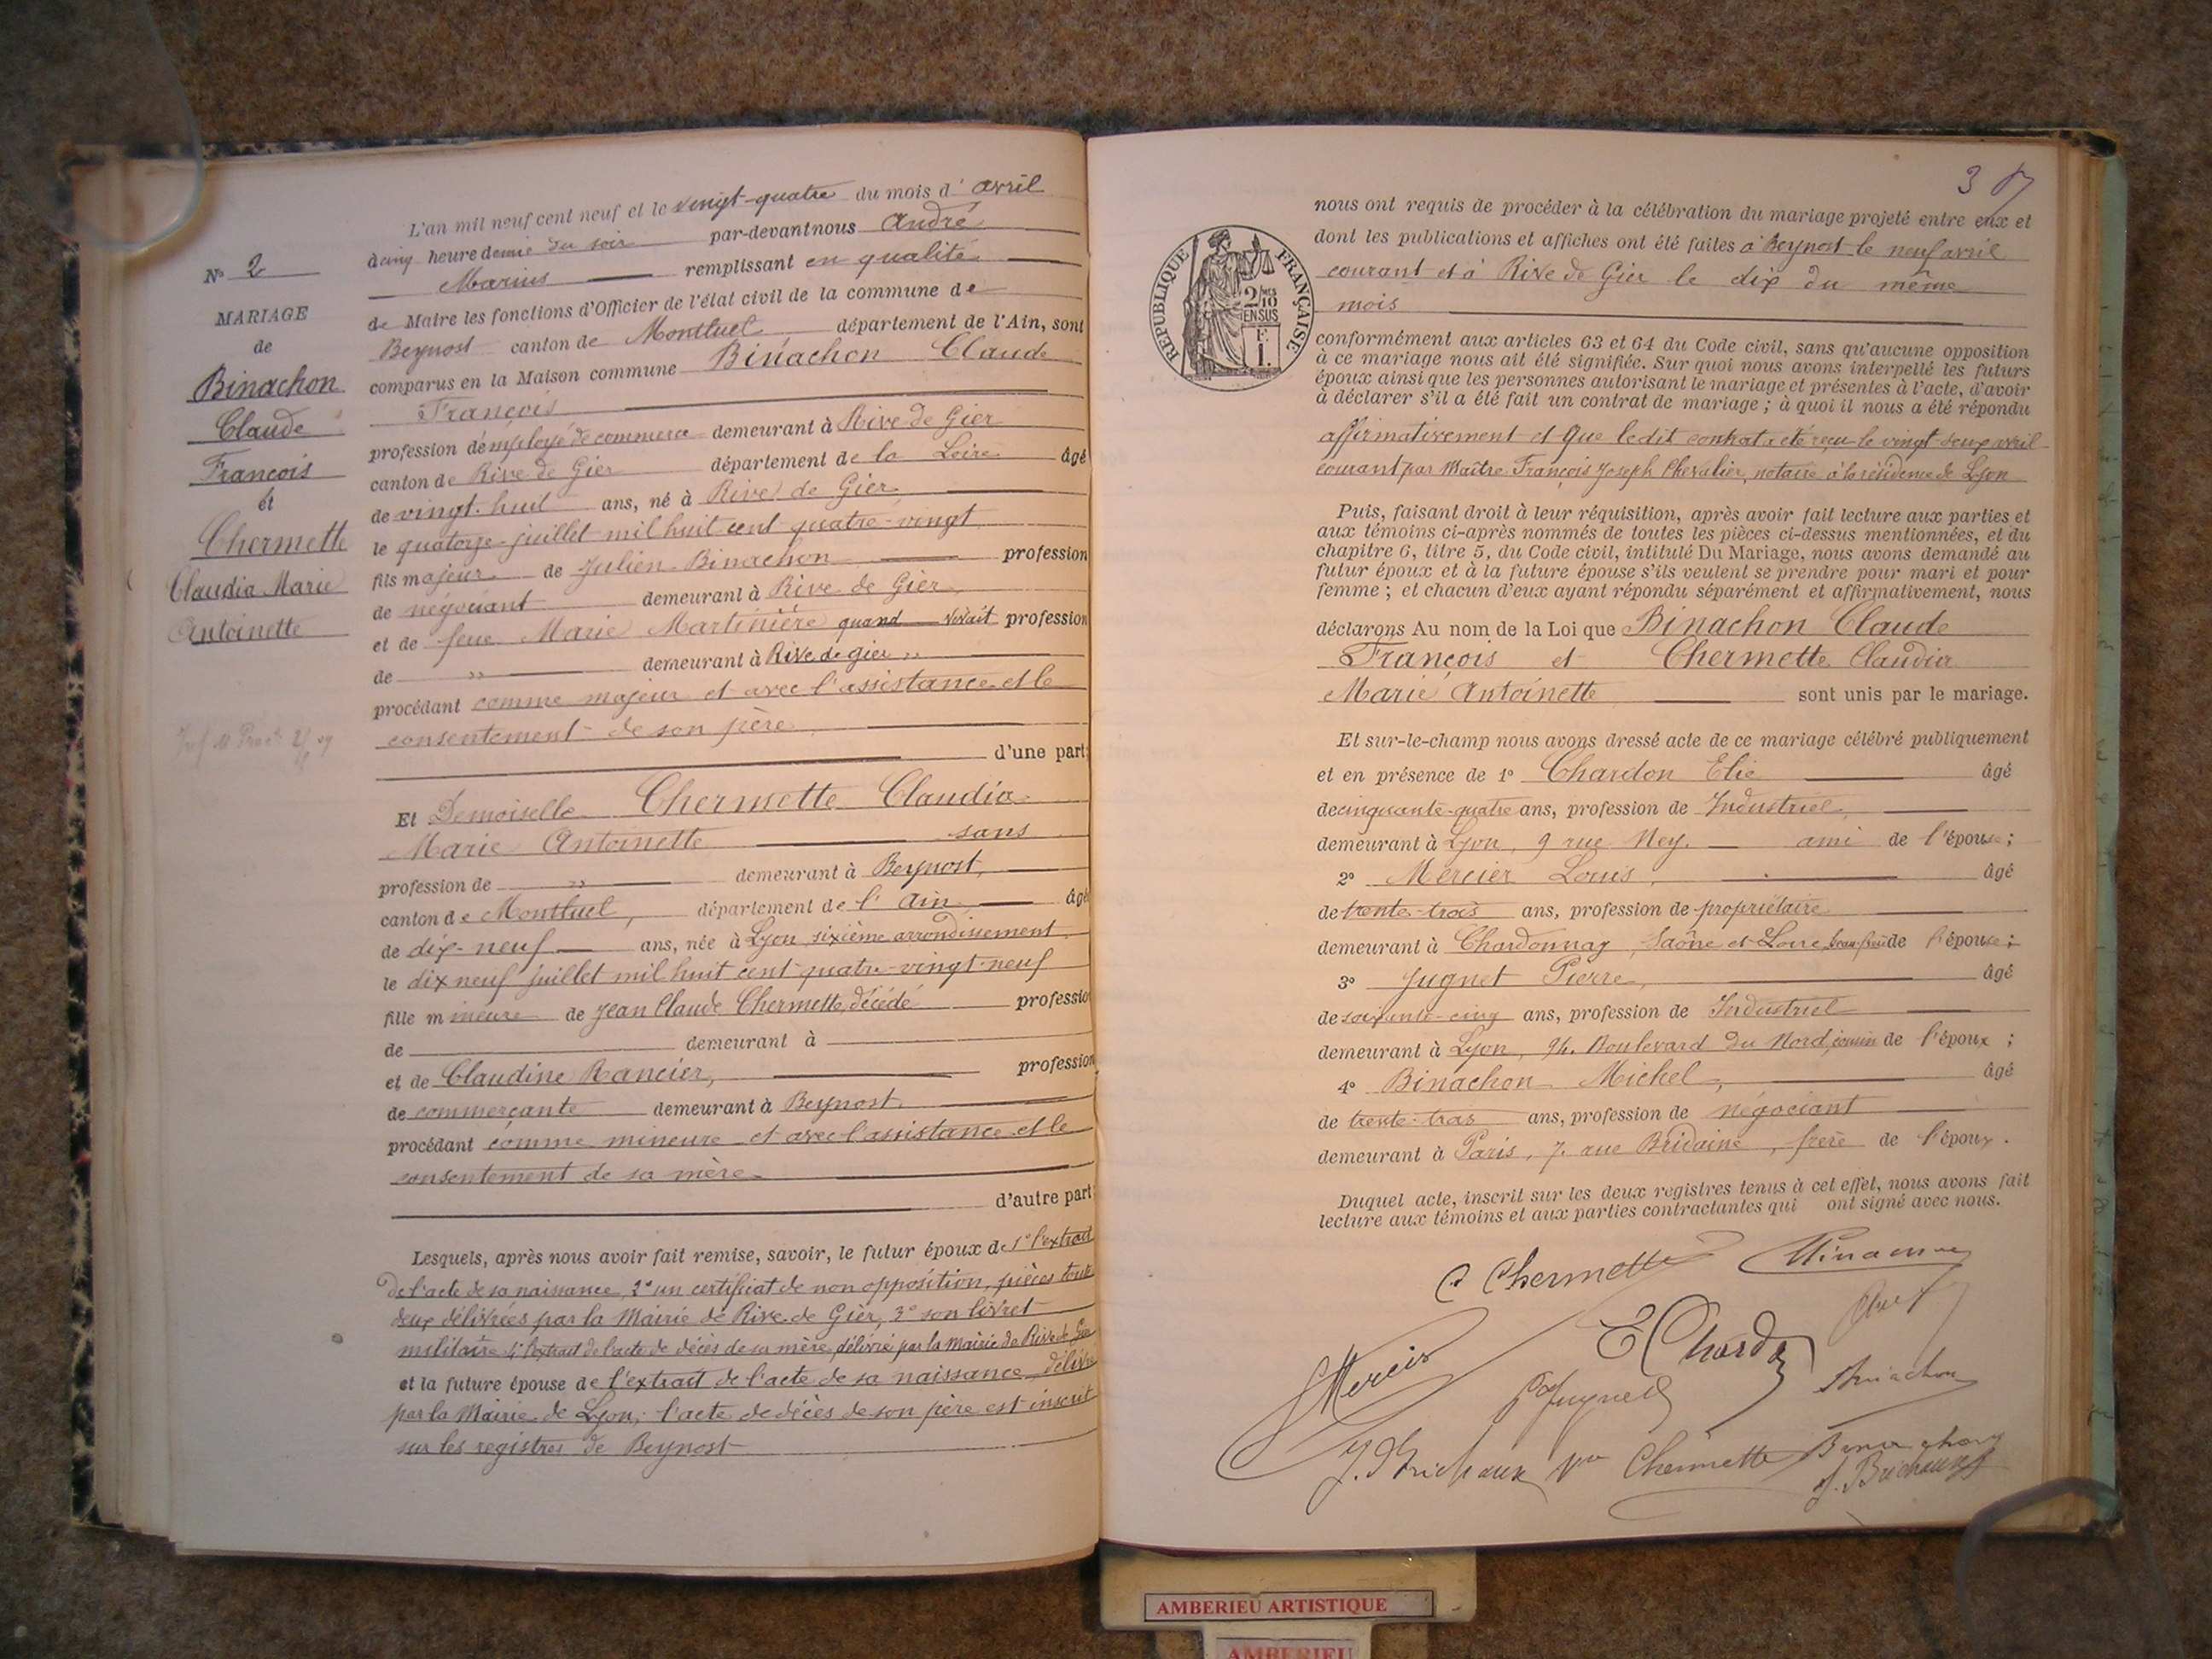 N° 2
MARIAGE
de
Binachon
Claude
François
et
Chermette
Claudia Marie
Antoinette
L'an mil neuf cent neuf et le vingt-quatre du mois d' avril
à cinq heure demie du soir par-devant nous André
Marius remplissant en qualité
de Maire les fonctions d'Officier de l'état civil de la commune de
Beynost canton de Montluel département de l'Ain, sont
comparus en la Maison commune Binachon Claude
François
profession d'employé de commerce demeurant à Rive de Gier
canton de Rive de Gier département de la Loire âgé
de vingt-huit ans, né à Rive de Gier
le quatorze juillet mil huit cent quatre-vingt
fils majeur de Julien Binachon profession
de négociant demeurant à Rive de Gier
et de feue Marie Martinière quand vivait profession
de " demeurant à Rive de gier "
procédant comme majeur et avec l'assistance et le
consentement de son père
d'une part;
Et Demoiselle Chermette Claudia
Marie Antoinette sans
profession de " demeurant à Beynost,
canton de Montluel, département de l' Ain âgé
de dix-neuf ans, née à Lyon sixième arrondissement
le dix neuf juillet mil huit cent quatre-vingt-neuf
fille mineure de Jean Claude Chermette, décédé profession
de demeurant à
et de Claudine Rancier, profession
de commerçante demeurant à Beynost.
procédant comme mineure et avec l'assistance et le
consentement de sa mère
d'autre part;
Lesquels, après nous avoir fait remise, savoir, le futur époux de 1° l'extrait
de l'acte de sa naissance, 2° un certificat de non opposition, pièces toutes
deux délivrées par la Mairie de Rive de Gier, 3° son livret
militaire 4° l'extrait de l'acte de décès de sa mère, délivré par la Mairie de Rive de Gier
et la future épouse de l'extrait de l'acte de sa naissance délivré
par la Mairie de Lyon; l'acte de décès de son père est inscrit
sur les registres de Beynost
3
REPUBLIQUE FRANÇAISE
2/10
EN SUS
F.
1.
nous ont requis de procéder à la célébration du mariage projeté entre eux et
dont les publications et affiches ont été faites à Beynost le neuf avril
courant et à Rive de Gier le dix du même
mois
conformément aux articles 63 et 64 du Code civil, sans qu'aucune opposition
à ce mariage nous ait été signifiée. Sur quoi nous avons interpellé les futurs
époux ainsi que les personnes autorisant le mariage et présentes à l'acte, d'avoir
à déclarer s'il a été fait un contrat de mariage ; à quoi il nous a été répondu
affirmativement et que ledit contrat a été reçu le vingt deux avril
courant par Maître François Joseph Chevalier, notaire à la résidence de Lyon
Puis, faisant droit à leur réquisition, après avoir fait lecture aux parties et
aux témoins ci-après nommés de toutes les pièces ci-dessus mentionnées, et du
chapitre 6, titre 5, du Code civil, intitulé Du Mariage, nous avons demandé au
futur époux et à la future épouse s'ils veulent se prendre pour mari et pour
femme ; et chacun d'eux ayant répondu séparément et affirmativement, nous
déclarons Au nom de la Loi que Binachon Claude
François et Chermette Claudia
Marie Antoinette sont unis par le mariage.
Et sur-le-champ nous avons dressé acte de ce mariage célébré publiquement
et en présence de 1° Chardon Elie âgé
de cinquante-quatre ans, profession de Industriel,
demeurant à Lyon, 9 rue Ney. ami de l'épouse;
2° Mercier Louis, âgé
de trente-trois ans, profession de propriétaire
demeurant à Chardonnay, Saône et Loire, beau-frère de l'épouse;
3° Jugnet Pierre, âgé
de soixante-cinq ans, profession de Industriel
demeurant à Lyon, 94. Boulevard du Nord, cousin de l'époux ;
4° Binachon Michel, âgé
de trente-trois ans, profession de négociant
demeurant à Paris, 7. rue Bridaine, frère de l'époux.
Duquel acte, inscrit sur les deux registres tenus à cet effet, nous avons fait
lecture aux témoins et aux parties contractantes qui ont signé avec nous.
C Chermette
E Chardon
Mercier
Jugnet
Binachon
Vve Chermette
Binachon
AMBERIEU ARTISTIQUE
AMBERIEU